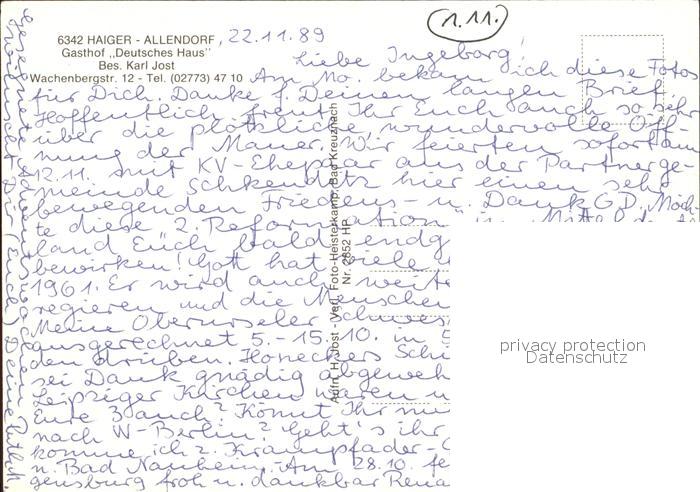 1.11.
6342 HAIGER - ALLENDORF
Gasthof „Deutsches Haus"
Bes. Karl Jost
Wachenbergstr. 12 - Tel. (02773) 47 10
22.11.89
Liebe Ingeborg!
Am Mo. bekam ich diese Fotos
für Dich. Danke f. Deinen langen Brief.
Hoffentlich freut Ihr Euch auch so sehr
über die plötzliche, wundervolle Öff-
nung der Mauer. Wir feierten sofort am
12.11. mit KV-Ehepaar aus der Partnerge-
meinde Schkeuditz hier einen sehr
bewegenden Friedens- u. Dank GD. Möch-
te diese 2. Reformation in Mittel
land Euch bald endg
bewirken! Gott hat viele
1961. Er wird auch weite
regieren und die Menschen
Meine Oberurseler Schwes
ausgerechnet 5.-15.10. in
den drüben. Honeckers
sei Dank gnädig abgeweh
Leipziger Kirchen waren
Eure 3 auch? Könnt Ihr
nach W-Berlin? Geht's ihr
komme ich z. Krampfader-
n. Bad Nauheim. Am 28.10. fe
gensburg froh u. dankbar Rena
Aufn. H. Jost - Verl. Foto-Heisterkamp, Bad Kreuznach
Nr. 2852 HP
privacy protection
Datenschutz